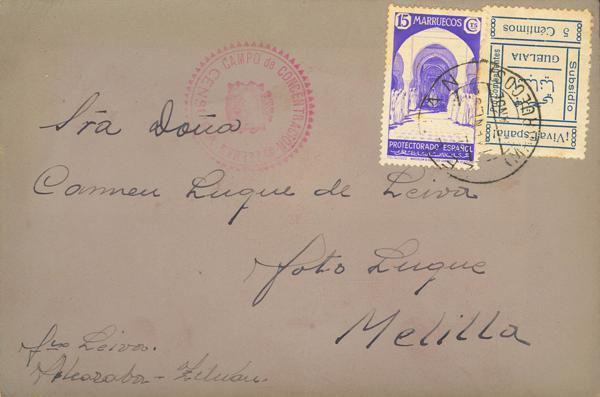 15 MARRUECOS Cts
PROTECTORADO ESPAÑOL
5 Céntimos
Subsidio
GUELAIA
Combatientes
¡Viva España!
CAMPO de CONCENTRACION
CENSURA
Sra Doña
Carmen Luque de Leiva
Foto Luque
Melilla
Leiva.
Alcazaba - Zeluán.